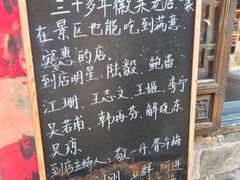 三十多年徽菜老店. 家
在景区也能吃到满意.
实惠的店.
到店明星: 陆毅 鲍蕾
江珊. 王志文. 王姬. 李宁
吴若甫. 韩丙芬. 解晓东
吴琼.
到店主持人: 敬一丹. 周牛梅
刚 亚群 阿进